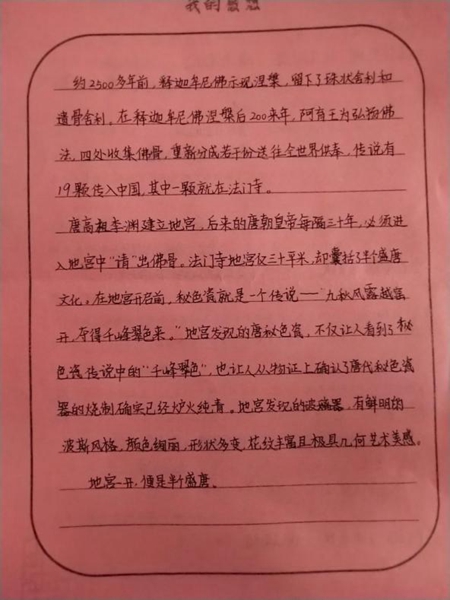 我的感想
约2500多年前，释迦牟尼佛示现涅槃，留下了珠状舍利和
遗骨舍利。在释迦牟尼佛涅槃后200来年，阿育王为弘扬佛
法，四处收集佛骨，重新分成若干份送往全世界供奉，传说有
19颗传入中国，其中一颗就在法门寺。
唐高祖李渊建立地宫，后来的唐朝皇帝每隔三十年，必须进
入地宫中“请”出佛骨。法门寺地宫仅三十平米，却囊括了半个盛唐
文化。在地宫开启前，秘色瓷就是一个传说——“九秋风露越窑
开，夺得千峰翠色来。”地宫发现的唐秘色瓷，不仅让人看到了秘
色瓷传说中的“千峰翠色”，也让人从物证上确认了唐代秘色瓷
器的烧制确实已经炉火纯青。地宫发现的玻璃器，有鲜明的
波斯风格，颜色绚丽，形状多变，花纹丰富且极具几何艺术美感。
地宫一开，便是半个盛唐。